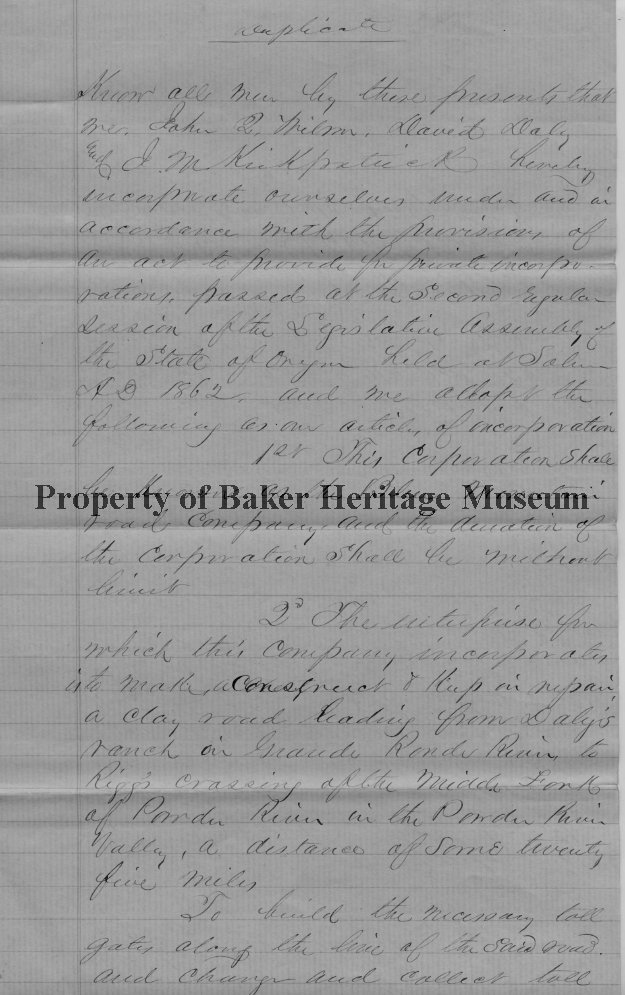 Duplicate
Know all men by these presents that
we, John Q. Wilson, David Daly
and J. M Kirkpatrick hereby
incorporate ourselves under and in
accordance with the provisions of
an act to provide for private incorpo-
rations, passed at the Second regular
session of the Legislative Assembly of
the State of Oregon held at Salem
AD 1862, and we adopt the
following as our articles of incorporation
1st This Corporation Shall
be known as the
Property of Baker Heritage Museum
road Company and the duration of
the Corporation Shall be without
limit
2d The enterprise for
which this Company incorporates
is to make, Construct & Keep in repair
a clay road leading from Daly's
ranch on Grande Ronde River to
Rigg's crossing of the Middle Fork
of Powder River in the Powder River
Valley, a distance of some twenty
five miles
To build the necessary toll
gates along the line of the said road.
and charge and collect toll